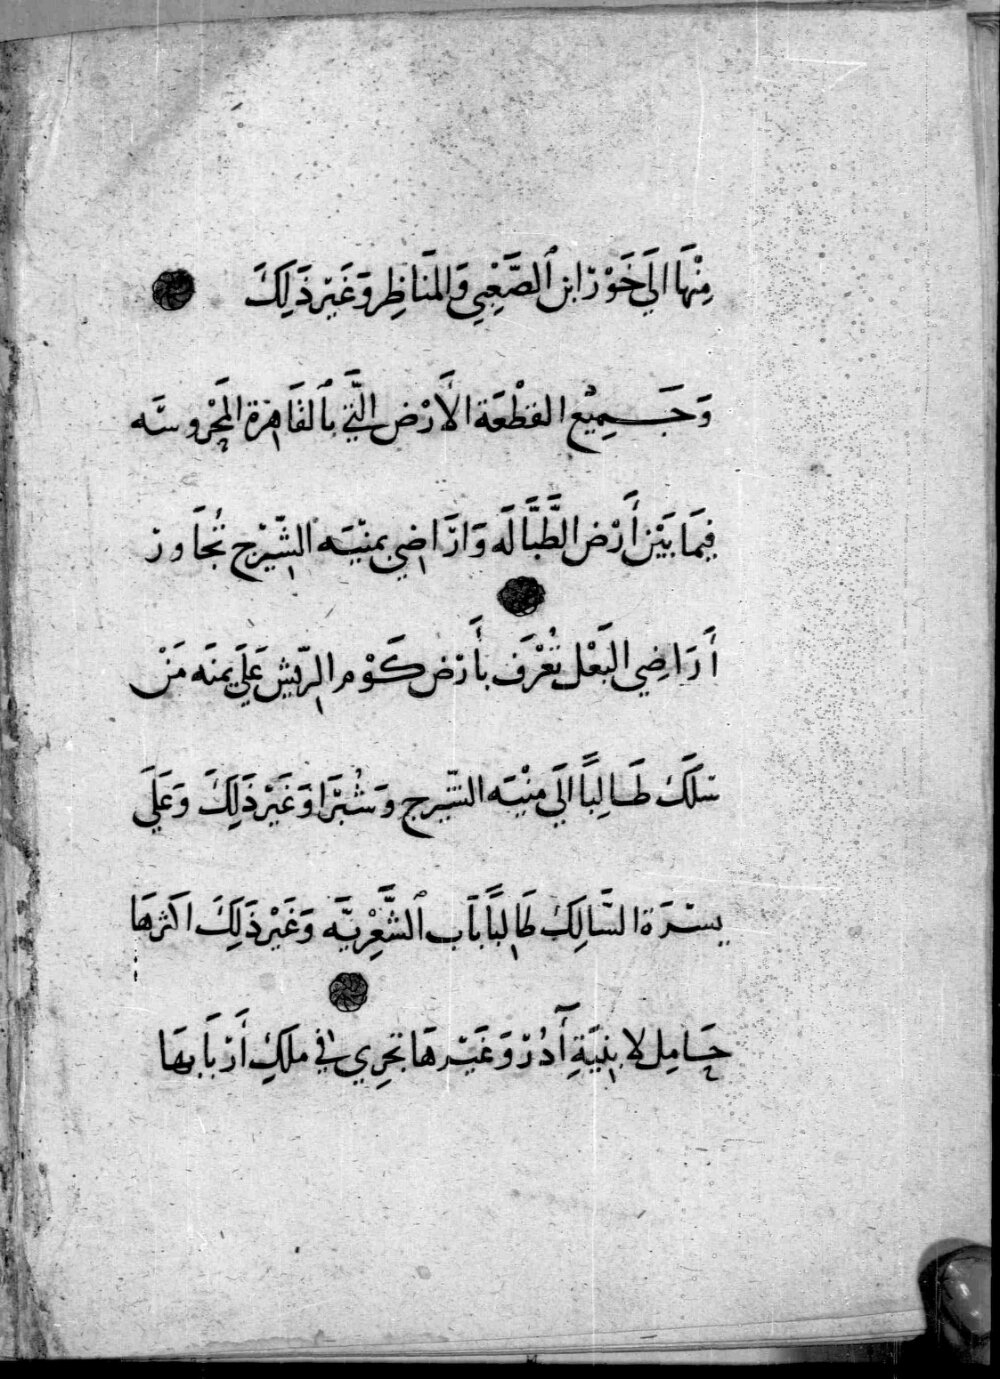 مِنْهَا الَي خَوْر ابن ٱلصَّغِيي وَالمَنَاظِر وَغَيْر ذَلِكَ
وَجَمِيْع القطْعَة الأَرْض الَّتي بٱلقَاهِرَة المَحْروسَه
فِيمَا بَيْن أَرْض الطَّبَّالَه وَارَاضِي بمنْيَه الشِّيْرَج تُجَاور
أَرَاضِي البَعْل تُعْرَف بأَرْض كَوْم الرِّيش عَلَي يمنَه مَنْ
سَلَكَ طَالِباً الَي منْيَه الشِّيرج وَشُبْرَا وَغَيْر ذَلِكَ وَعَلَي
يسْرَة السَّالِك طَالِباً بَاب ٱلشَّعْرِيَّه وَغَيْر ذَلِكَ اكثرهَا
حَامِل لابنِيَةِ أَدُرْ وَغَيْرهَا تجري في ملكِ أَرْبَابهَا